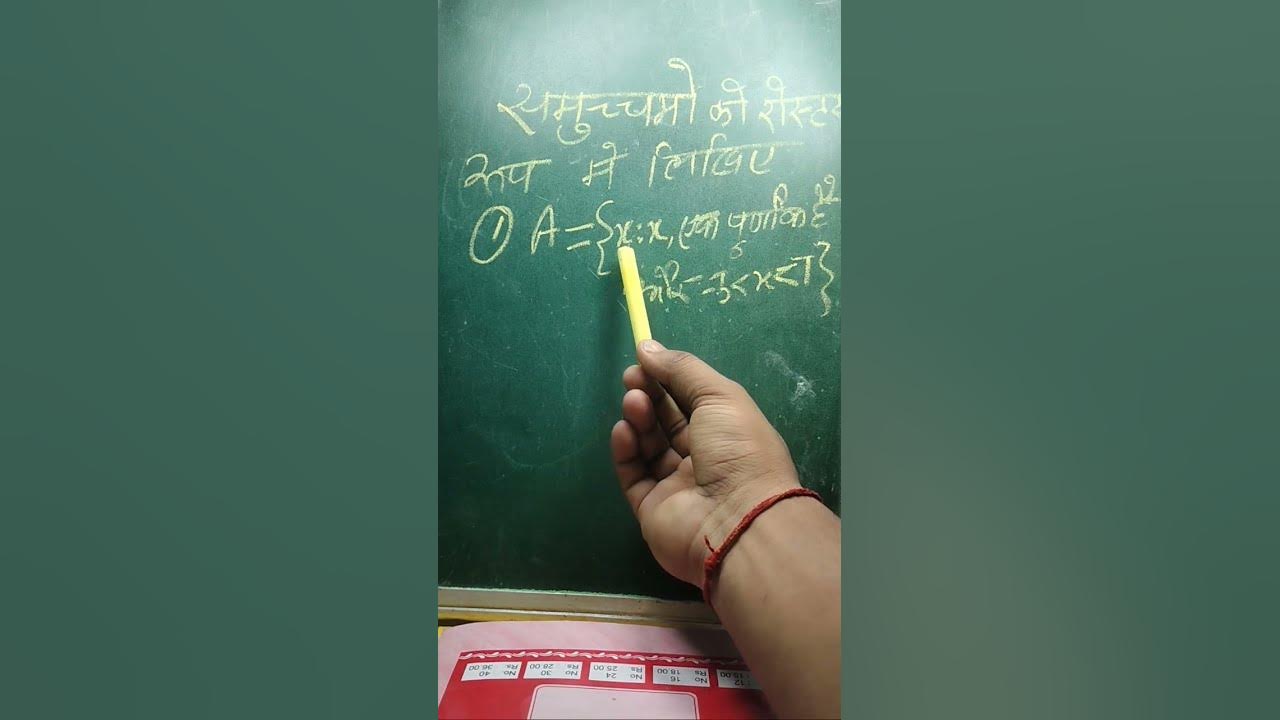 समुच्चयो को रोस्टर
रूप मे लिखिए
① A = {x : x, एक पूर्णांक है
और -3 < x < 7}
No. 40 Rs 36.00
No. 30 Rs 28.00
No. 24 Rs 25.00
No. 16 Rs 18.00
: 12 : 15.00